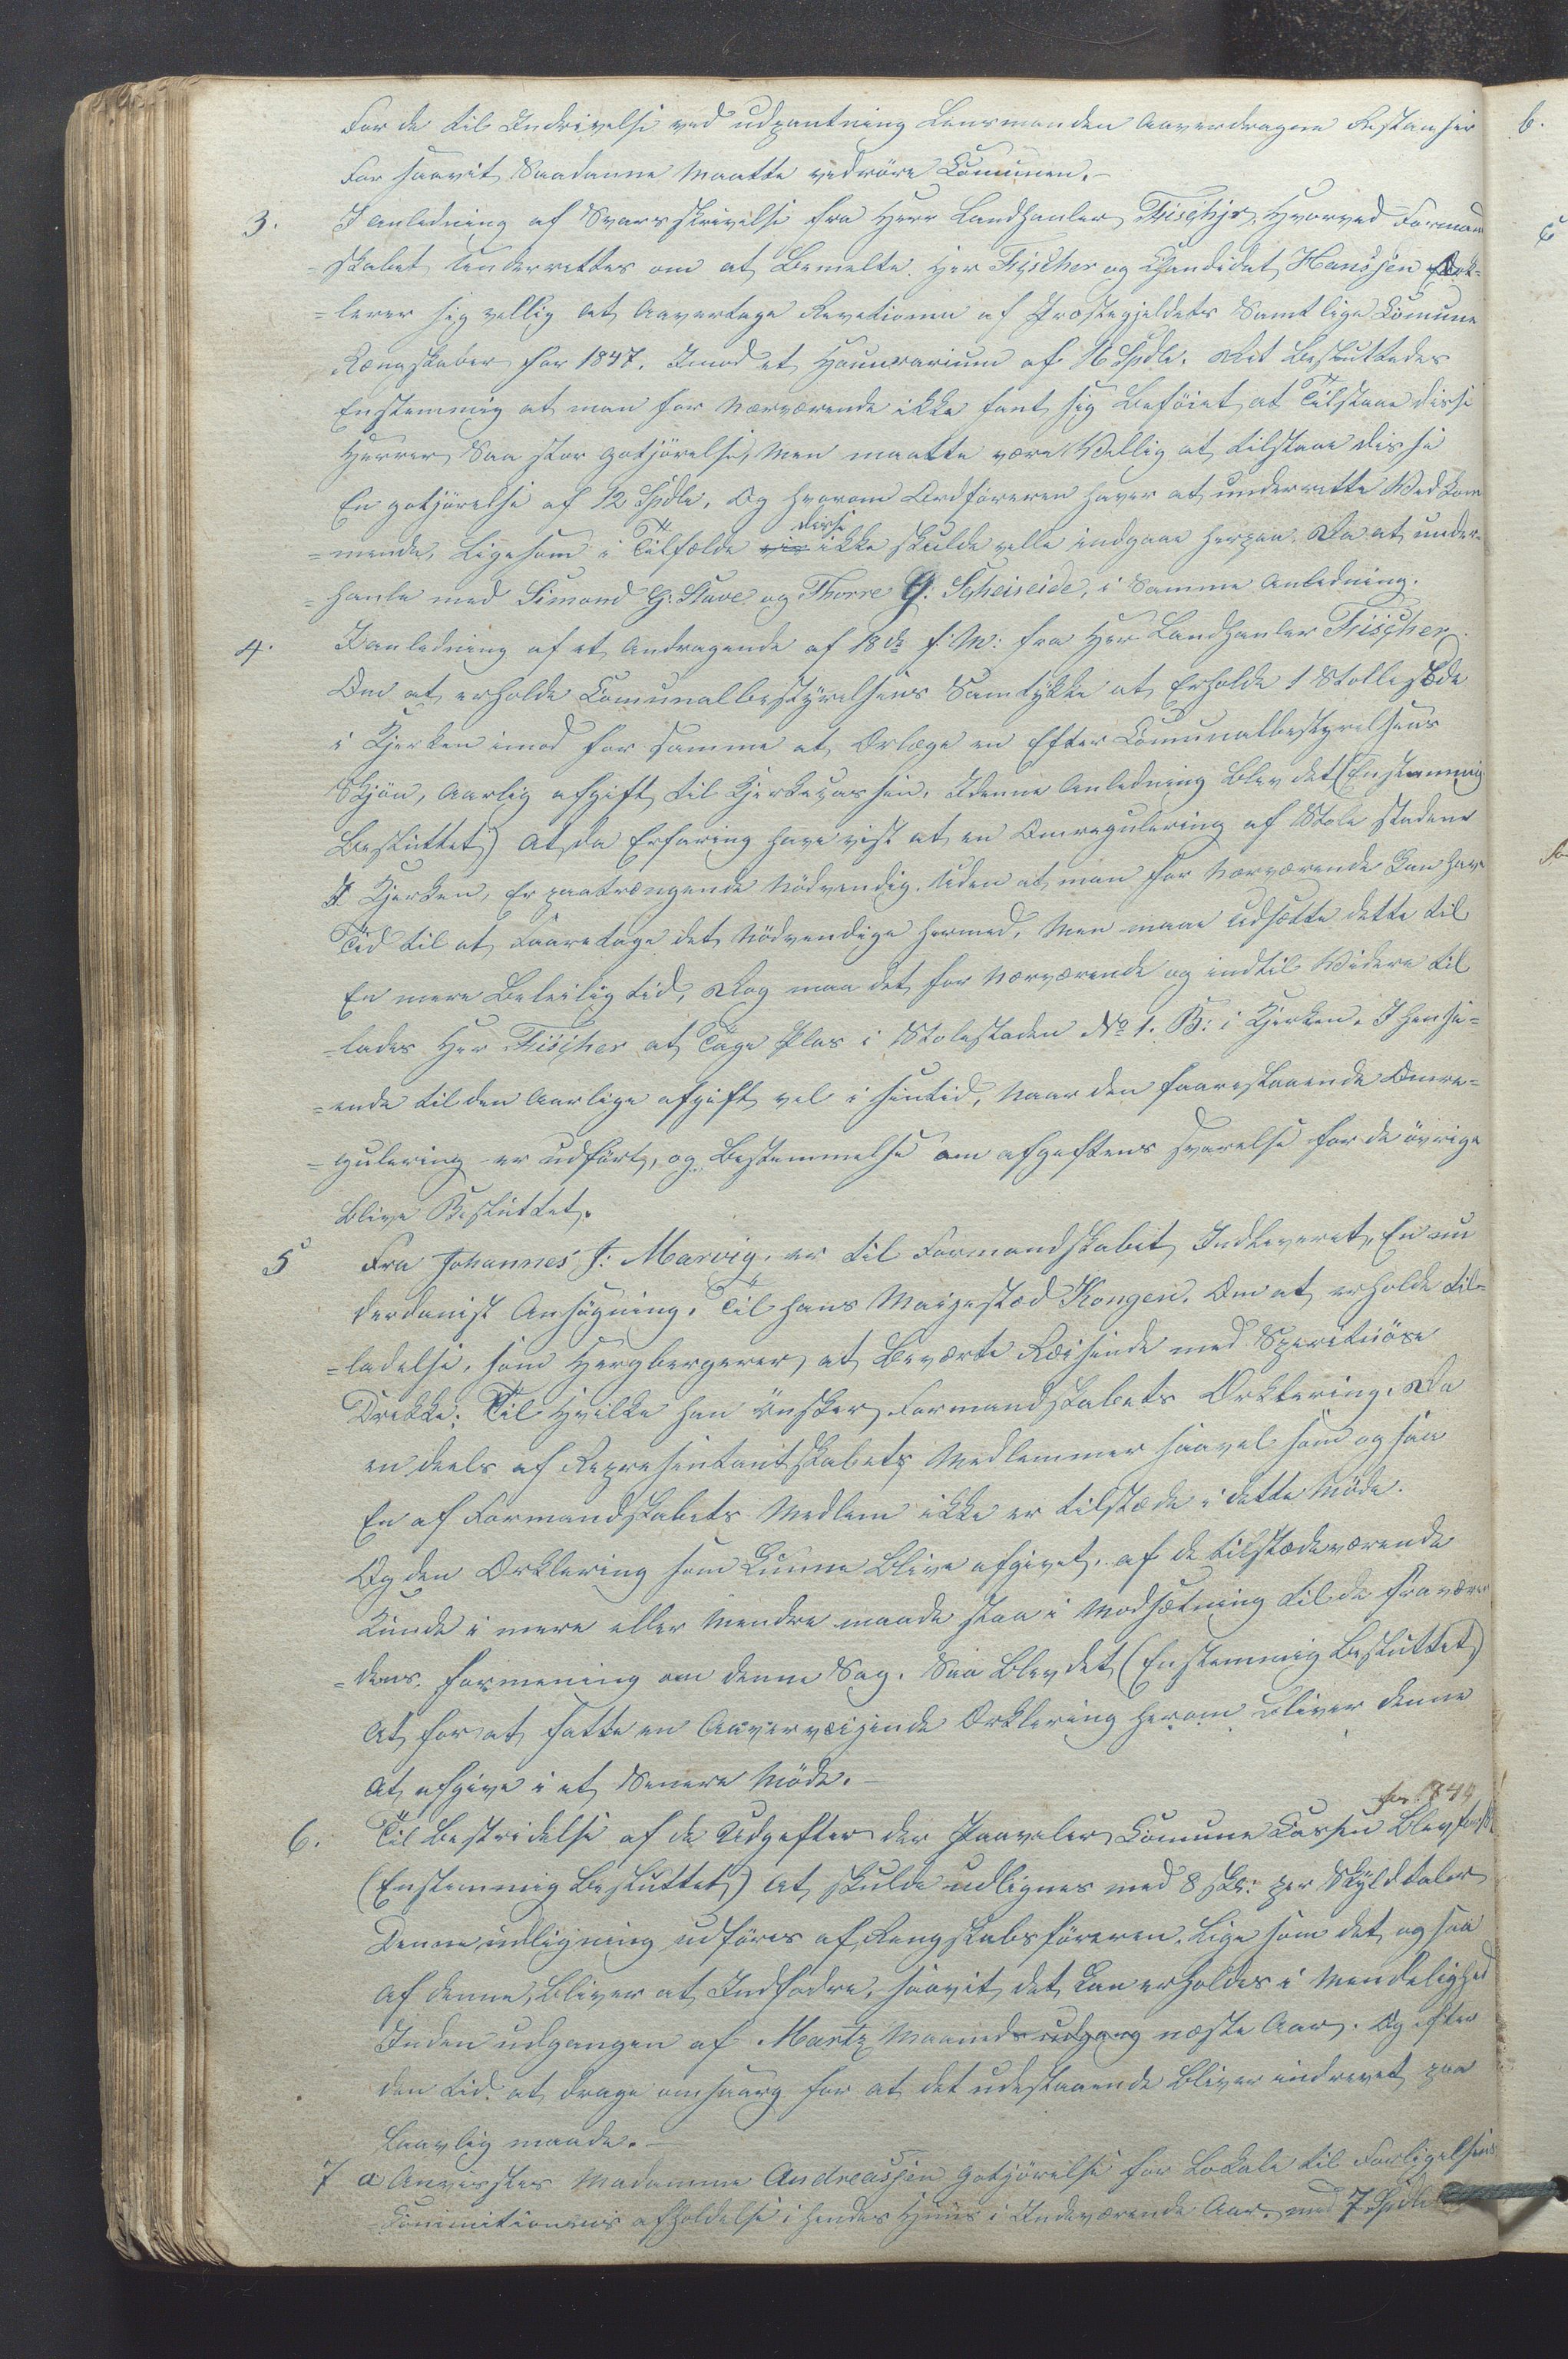 For de til Inddrivelse ved udpantning Lensmanden Aaverdragne Restanser
For saavit Saadanne Maatte vedröre Comunen.-
3. I anledning af Svarsskrivelse fra Herr Landhanler Fischer, Hvorved Formand
-skabet Underrettes om at Bemelte Her Fischer og Chandidat Hanssen Erk-
-lerer sig vellig at Aavertage Revetionen af Prestegjeldets Samtlige Comune
Rængskaber for 1847. Imod et Hounorarium af 16 Spdlr. Det Besluttedes
Enstemmig at man for Nærværende ikke fant sig Beföiet at Tilstaae disse
Herrer Saa stor gotjörelse, Men maatte være Vellig at tilstaae disse
En gotjörelse af 12 Spdlr, Og hvorom Ordföreren haver at underrette Vedkom
-mende, Ligesom i Tilfælde disse ikke skulde velle indgaae herpaa. Da at under-
-hanle med Simond G: Stave og Thorre G: Scheiseide, i Samme Anledning.
4. I anledning af et Andragende af 18de f: M: fra Her Landhanler Fischer
Om at erholde Comunalbestyrelsens Samtykke at Erholde 1 Stollesæde
i Kjerken imod for Samme at Erlæge en Efter Comunalbestyrelsens
Skjön, Aarlig afgift til Kjerkecassen. I denne Anledning Blev det (Enstemmig
Besluttet) At da Erfaring have vist at en Omregulering af Stole stadene
I Kjerken, Er paatrængende Nödvendig. Uden at man for Nærværende Kan have
Tid til at Faaretage det Nödvendige hermed, Men maae Udsætte dette til
En mere Beleilig tid, Dog maa det for Nærværende og indtil Videre til
-lades Her Fischer at Tage Plas i Stolestaden No 1. B: i Kjerken. I hense-
-ende til den Aarlige afgift vel i sintid, Naar den faarestaaende Omre-
-gulering er udfört, og Bestemmelse om afgiftens svarelse for de övrige
Blive Besluttet.
5 Fra Johannes J: Marvig, er til Formandskabet Indleveret, En un
derdanigst Ansögning. Til hans Maigestæd Kongen. Om at erholde til-
-ladelse, som Hergbergerer, at Beværte Reisende med Speritiöse
Drekke; Til Hvilke han önsker Formandskabets Erklering. Da
en deels af Represintantskabets Medlemmer saavel som og saa
En af Formandskabets Medlem ikke er tilstæde i dette Möde.
Og den Erklering som Kunne Blive afgivet, af de tilstædeværende
Kunde i mere eller Mendre maade staa i Modsætning til de Fraværen
-dens. Formening om denne Sag. Saa Blev det (Enstemmig Besluttet)
At for at fatte en Aaverveijende Erklering herom Bliver denne
At afgive i et Senere Möde.-
6. Til Bestridelse af de Udgefter der Paaveler Comune Cassen for 1849 Blev
(Enstemmig Besluttet) At skulde udlignes med 8 sk: per Skylddaler
Denne udligning udföres af Rengskabsföreren. Lige som det og saa
af denne, Bliver at Indfodre, saavit det Kan erholdes i Mendelighed
Inden udgangen af Martz Maaneds udgang næste Aar. Og efter
den tid, at drage omsaarg for at det udestaaende Bliver inddrevet paa
Laavlig maade.-
7 a Anvistes Madamme Andreassen Gotjörelse for Lokale til Forligelses
Commitionens afholdelse i hendes Huus i Indeværende Aar, med 7 Spdlr